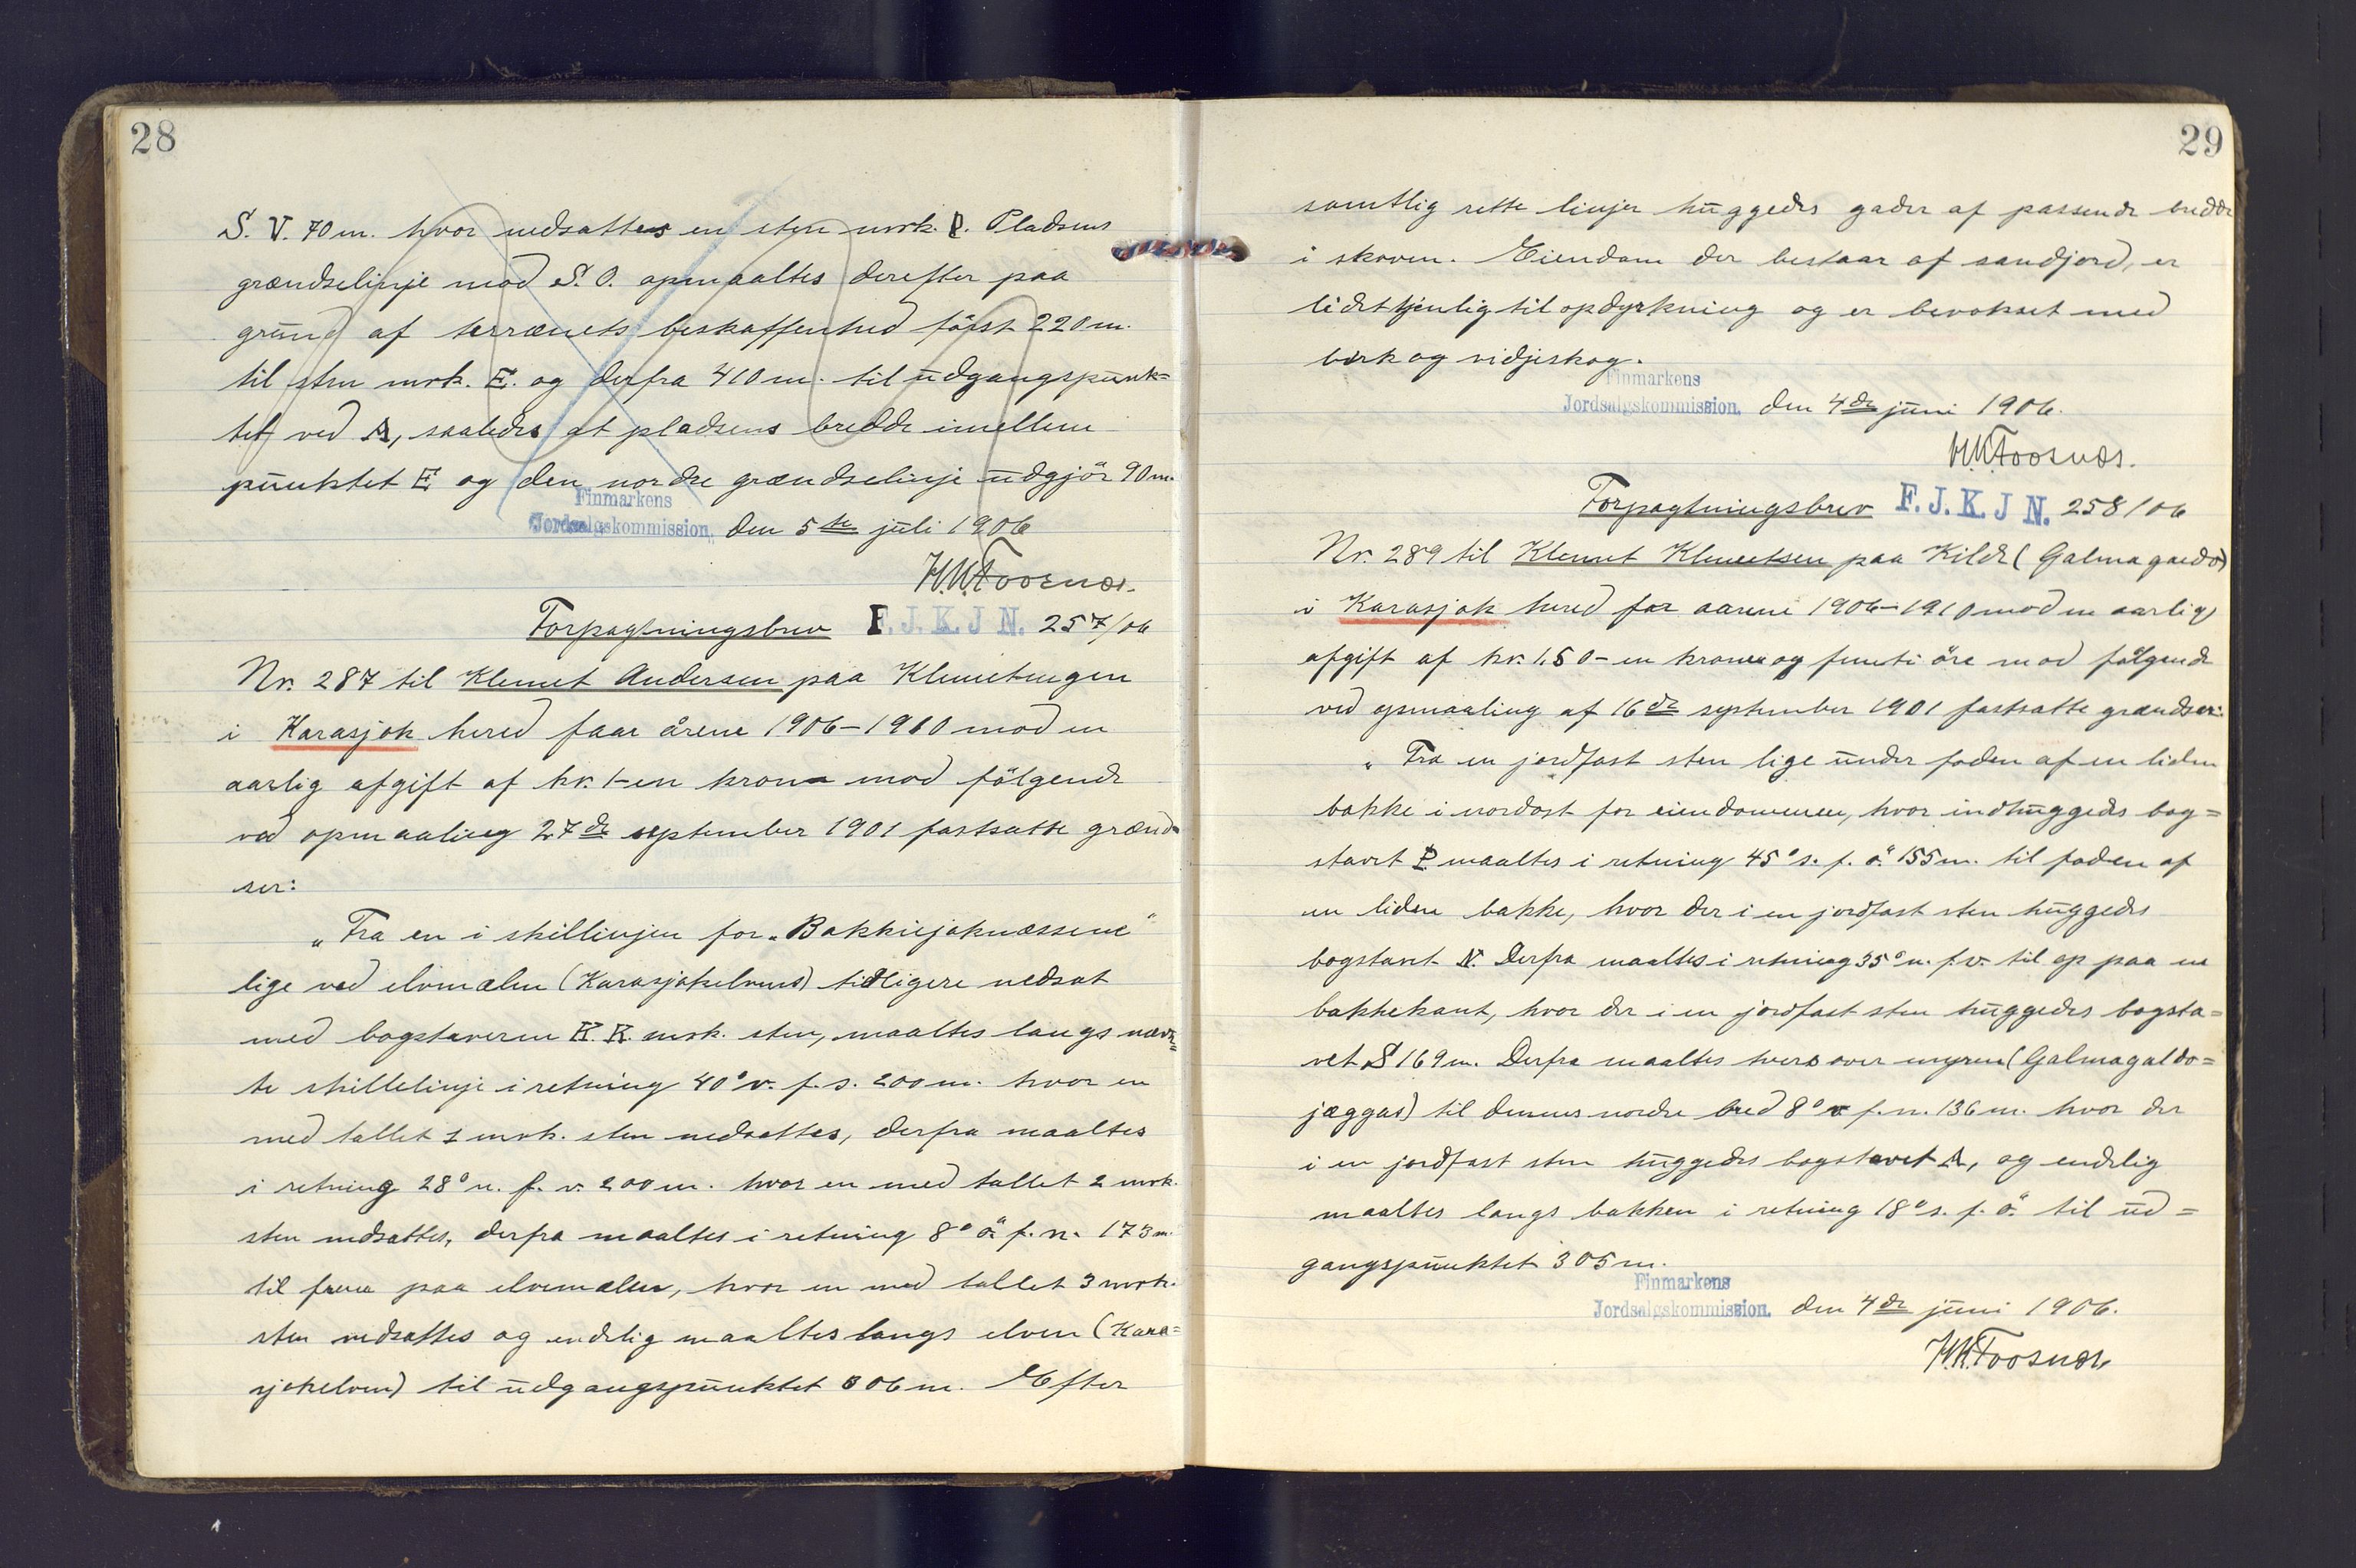 28
S. V. 70 m. hvor nedsattes en sten mrk. D. Pladsens
grændselinje mod S. O. opmaaltes derefter paa
grund af terrænets beskaffenhed först 220 m.
til sten mrk. E. og derfra 410 m. til udgangspunk=
tet ved A, saaledes at pladsens bredde imellem
punktet E og den nordre grændselinje udgjör 90 m.
Finmarkens
Jordsalgskommission, den 5te juli 1906
H.K.Foosnæs.
Forpagtningsbrev F. J. K. J N. 257/06
Nr. 287 til Klemet Andersen paa Klemetengen
i Karasjok hered faar årene 1906-1910 mod en
aarlig afgift af kr. 1-en krone mod fölgende
ved opmaaling 27de september 1901 fastsatte grænd=
ser:
„Fra en i skillinjen for „Bakkiejoknæssene"
lige ved elvmælen (Karasjokelvens) tidligere nedsat
med bogstaveren K. K. mrk. sten, maaltes langs nævn=
te skillelinje i retning 40° v. f. s. 200 m. hvor en
med tallet 1 mrk. sten nedsattes, derfra maaltes
i retning 28° n. f. v. 200 m. hvor en med tallet 2 mrk.
sten nedsattes, derfra maaltes i retning 8° ö. f. n. 173 m.
til frem paa elvemælen, hvor en med tallet 3 mrk.
sten nedsattes og endelig maaltes langs elven (Kara=
sjokelven) til udgangspunktet 306 m. Efter
29
samtlig rette linjer huggedes gader af passende bredde
i skoven. Eiendom der bestaar af sandjord, er
lidet tjenlig til opdyrkning og er bevokset med
birk og vidjeskog.
Finmarkens
Jordsalgskommission, den 4de juni 1906.
H.K.Foosnæs.
Forpagtningsbrev F. J. K. J N. 258/06
Nr. 289 til Klemet Klemetsen paa Kilde (Galmagaldo)
i Karasjok hered for aarene 1906-1910 mod en aarlig
afgift af kr. 1,50- en krone og femti öre mod fölgende
ved opmaaling af 16de september 1901 fastsatte grændser:
„Fra en jordfast sten lige under foden af en liden
bakke i nordost for eiendommen, hvor indhuggedes bog=
stavet P maaltes i retning 45° s. f. ö. 155 m. til foden af
en liden bakke, hvor der i en jordfast sten huggedes
bogstavet N. Derfra maaltes i retning 35° n. f. v. til op paa en
bakkekant, hvor der i en jordfast sten huggedes bogsta=
vet S 169 m. Derfra maaltes tvers over myren (Galmagaldo=
jæggas) til dennes nordre bred 8° v f. n. 136 m. hvor der
i en jordfast sten huggedes bogstavet A, og endelig
maaltes langs bakken i retning 18° s. f. ö. til ud=
gangspunktet 305 m.
Finmarkens
Jordsalgskommission, den 4de juni 1906.
H.K.Foosnæs